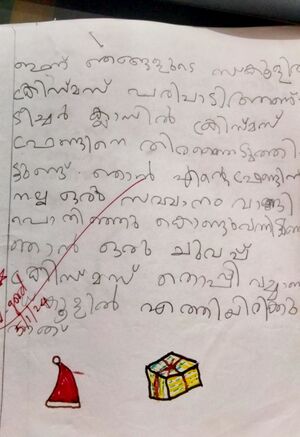 ഇന്ന് ഞങ്ങളുടെ സ്കൂളിൽ
ക്രിസ്മസ് പരിപാടിആണ്
ടീച്ചർ ക്ലാസിൽ ക്രിസ്മസ്
ഫ്രണ്ടിനെ തിരഞ്ഞെടുത്തി
ട്ടുണ്ട് ഞാൻ എന്റെ ഫ്രണ്ടിന്
നല്ല ഒരു സമ്മാനം വാങ്ങി
പൊതിഞ്ഞു കൊണ്ടുവന്നിട്ടുണ്ട്
ഞാൻ ഒരു ചുവപ്പ്
ക്രിസ്മസ് തൊപ്പി വച്ചാണ്
സ്കൂളിൽ എത്തിയിരിക്കു
ന്നത്